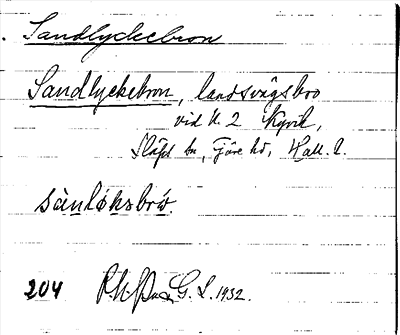 Sandlyckebron
Sandlyckebron, landsvägsbro
vid n. 2 Kyvik,
Släps sn, Fjäre hd, Hall. l.
sànløksbrò.
204 G. L. 1932.